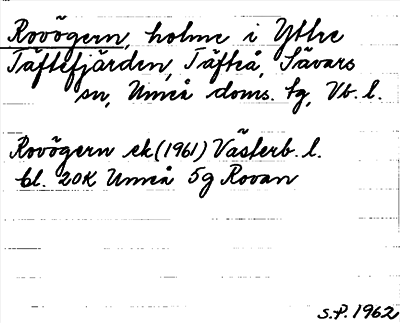 Rovögern, holme i Yttre
Täftefjärden, Täfteå, Sävars
sn, Umeå doms. tg, Vb. l.
Rovögern ek (1961) Västerb. l.
bl. 20K Umeå 5g Rovan
S.P. 1962